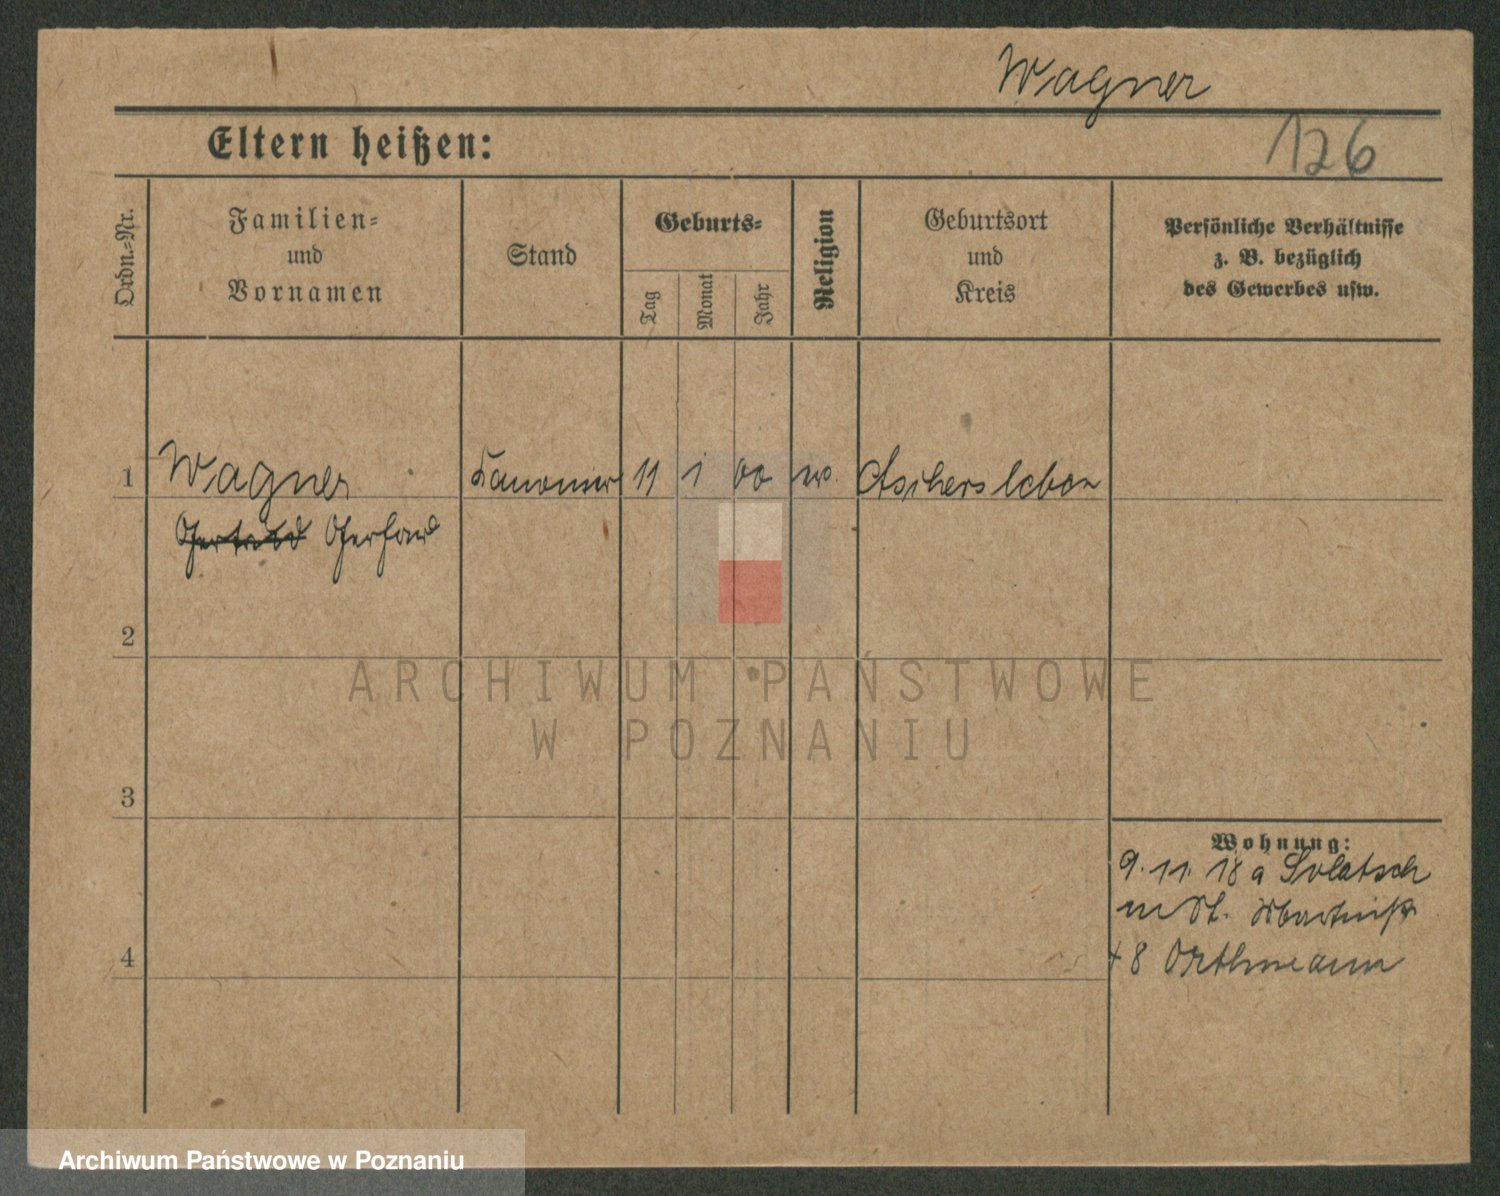 Wagner
Eltern heißen:
126
Ordn.=Nr.
Familien=
und
Vornamen
Stand
Geburts=
Tag
Monat
Jahr
Religion
Geburtsort
und
Kreis
Persönliche Verhältnisse
z. B. bezüglich
des Gewerbes usw.
1
Wagner
Kanonier
11
1
00
ev.
Aschersleben
Gerhard
2
ARCHIWUM PAŃSTWOWE
W POZNANIU
3
Wohnung:
9. 11. 18 a Solatsch
4
8 Orthmann
Archiwum Państwowe w Poznaniu